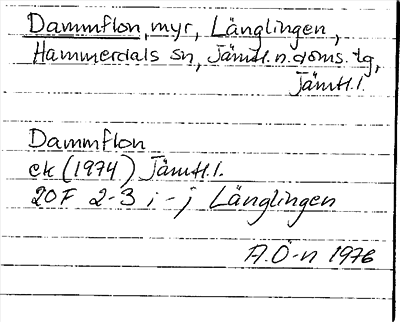 Dammflon, myr, Länglingen,
Hammerdals sn, Jämtl.n.doms.tg,
Jämtl.l.
Dammflon
ek (1974) Jämtl.l.
20F 2-3 i-j Länglingen
A.Ö-n 1976